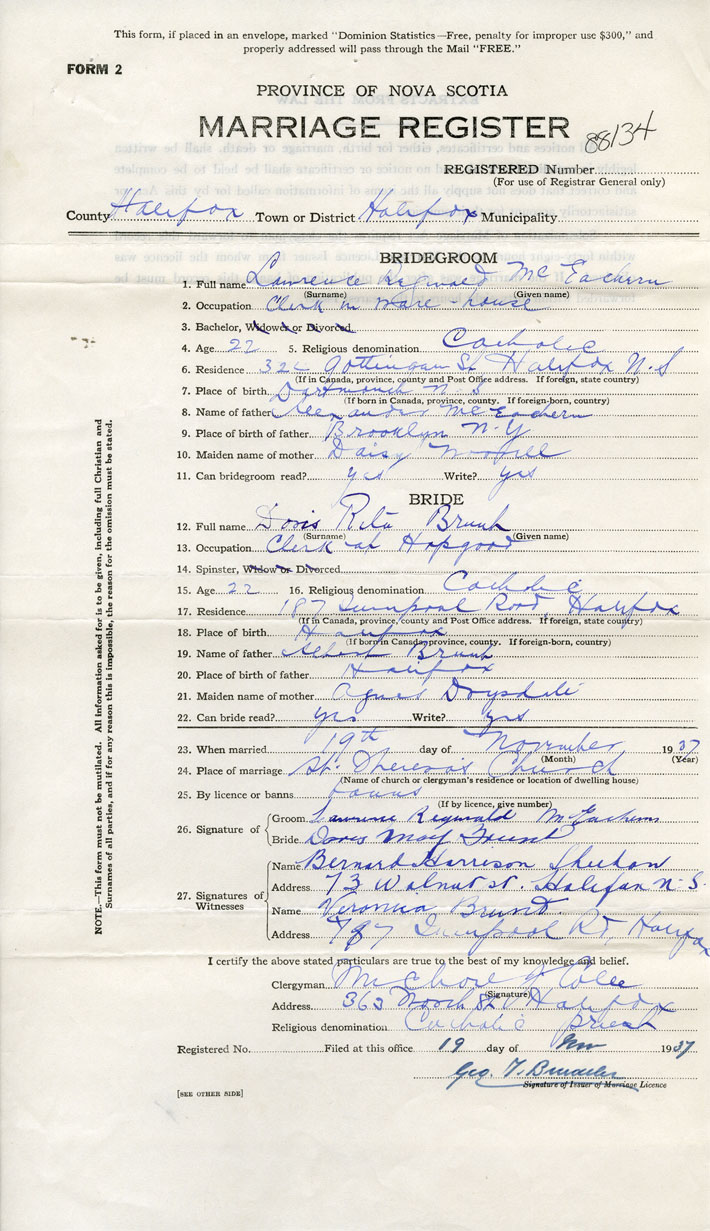 This form, if placed in an envelope, marked "Dominion Statistics—Free, penalty for improper use $300," and
properly addressed will pass through the Mail "FREE."
FORM 2
PROVINCE OF NOVA SCOTIA
MARRIAGE REGISTER
88134
REGISTERED Number
(For use of Registrar General only)
County Halifax Town or District Halifax Municipality
BRIDEGROOM
1. Full name Lawrence Reginald McEachern
(Surname) (Given name)
2. Occupation Clerk in ware house
3. Bachelor, Widower or Divorced
4. Age 22 5. Religious denomination Catholic
6. Residence Gottingen St Halifax N.S
(If in Canada, province, county and Post Office address. If foreign, state country)
7. Place of birth Dartmouth N S
(If born in Canada, province, county. If foreign-born, country)
8. Name of father Alexander McEachern
9. Place of birth of father Brooklyn N-Y
10. Maiden name of mother Daisy
11. Can bridegroom read? yes Write? yes
BRIDE
12. Full name Doris Rita Brunt
(Surname) (Given name)
13. Occupation Clerk at Hopgood
14. Spinster, Widow or Divorced
15. Age 22 16. Religious denomination Catholic
17. Residence 187 Quinpool Road, Halifax
(If in Canada, province, county and Post Office address. If foreign, state country)
18. Place of birth Halifax
(If born in Canada, province, county. If foreign-born, country)
19. Name of father Albert Brunt
20. Place of birth of father Halifax
21. Maiden name of mother Agnes Drysdale
22. Can bride read? yes Write? yes
23. When married 19th day of November 1937
(Month) (Year)
24. Place of marriage St. Theresa's Church
(Name of church or clergyman's residence or location of dwelling house)
25. By licence or banns
(If by licence, give number)
26. Signature of
Groom Lawrence Reginald McEachern
Bride Doris May Brunt
27. Signatures of Witnesses
Name Bernard Harrison Sheehan
Address 73 Walnut St. Halifax N.S.
Name Veronica Brunt.
Address Quinpool Rd, Halifax
I certify the above stated particulars are true to the best of my knowledge and belief.
Clergyman
(Signature)
Address 363 North St Halifax
Religious denomination Catholic priest
Registered No. Filed at this office 19 day of Nov 1937
Geo. T.
Signature of Issuer of Marriage Licence
[SEE OTHER SIDE]
NOTE.—This form must not be mutilated. All information asked for is to be given, including full Christian and
Surnames of all parties, and if for any reason this is impossible, the reason for the omission must be stated.